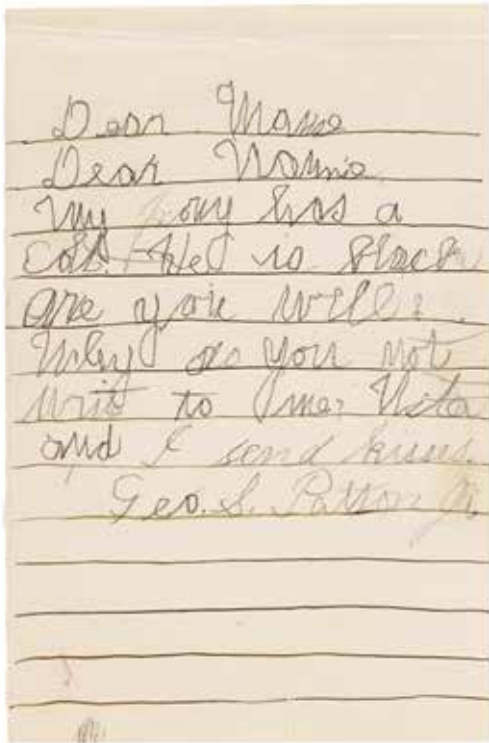 Dear Mame
Dear Nannie
My pony has a
Colt. He is black
are you well?
Why do you not
writ to me? Nita
and I send kisses.
Geo. S. Patton Jr.